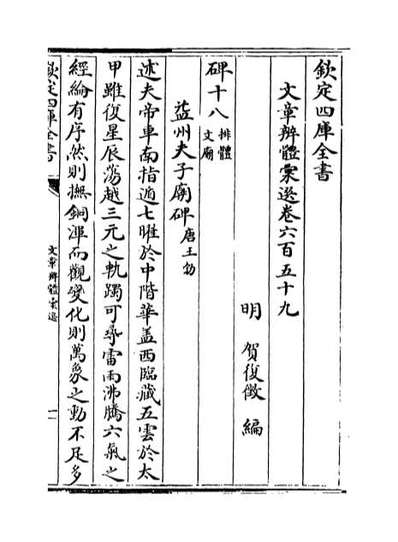 欽定四庫全書
文章辨體彙選卷六百五十九
明 賀復徵 編
碑十八 排體 文廟
益州夫子廟碑 唐王勃
述夫帝車南指遁七曜於中階華盖西臨藏五雲於太
甲雖復星辰蕩越三元之軌躅可尋雷雨沸騰六氣之
經綸有序然則撫銅渾而觀變化則萬象之動不足多
欽定四庫全書
文章辨體彙選
一